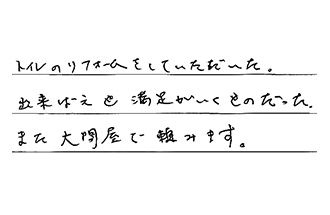 トイレのリフォームをしていただいた。
出来ばえも満足がいくものだった。
また大問屋で頼みます。